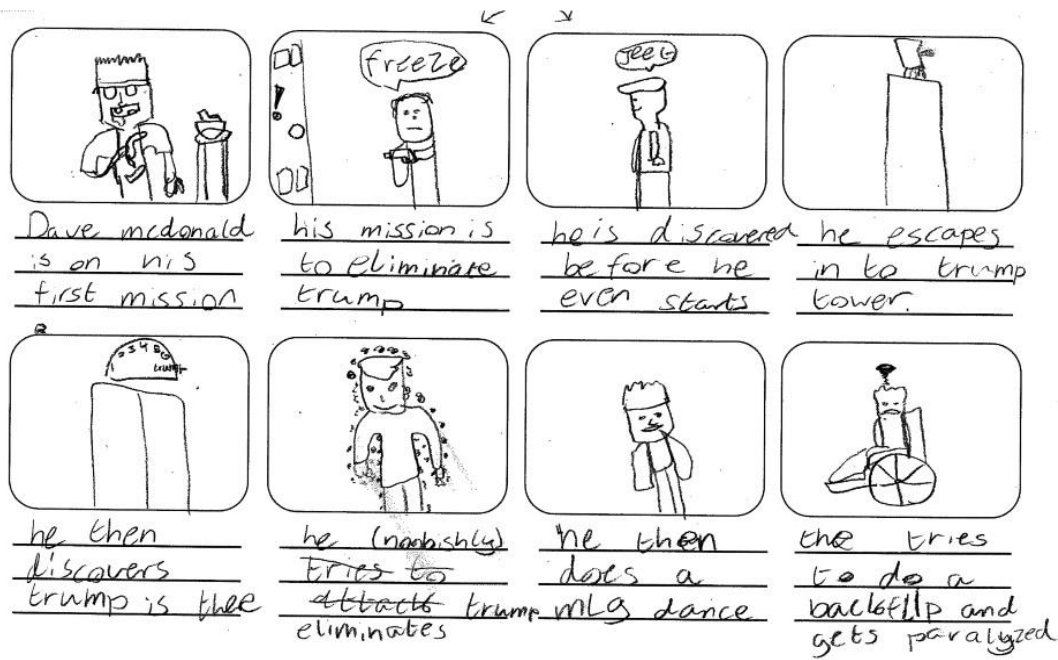 freeze
Dave mcdonald
is on his
first mission
his mission is
to eliminate
trump
he is discovered
before he
even starts
he escapes
in to trump
tower.
he then
discovers
trump is thee
he (noobishly)
tries to
attack trump
eliminates
he then
does a
mlg dance
the tries
to do a
backflip and
gets paralyzed